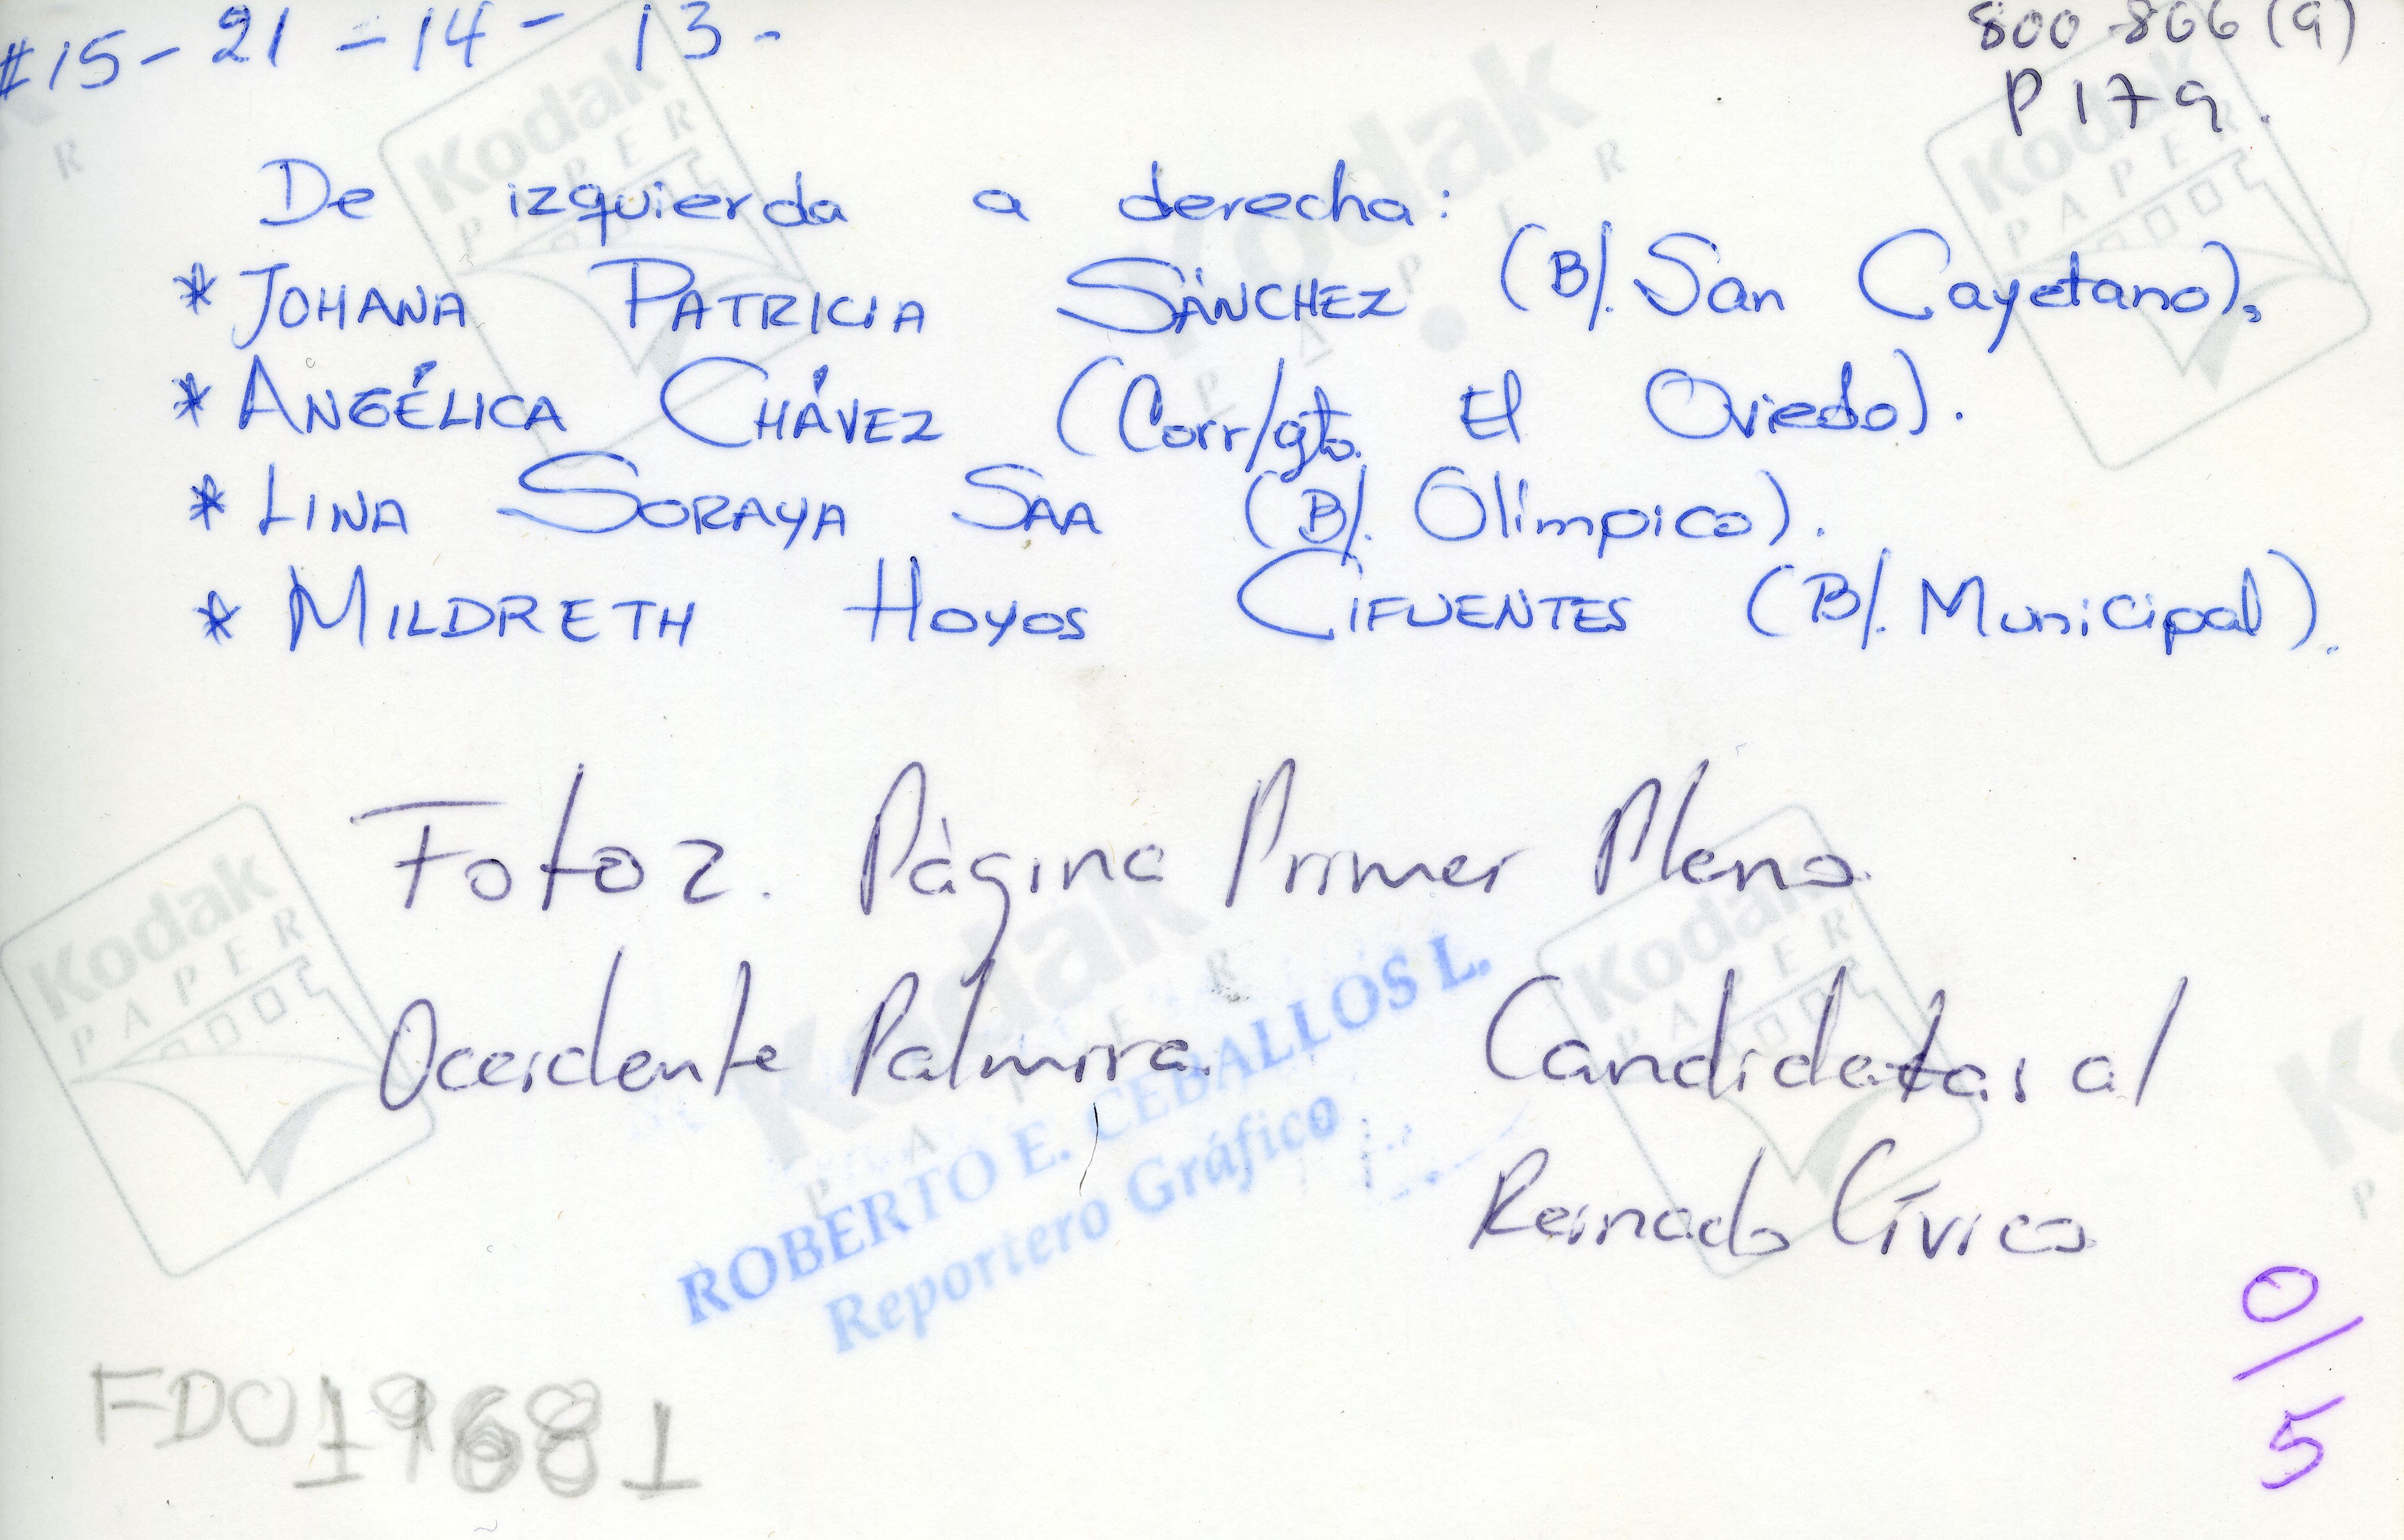 #15 - 21 - 14 - 13 -
800-806 (9)
P 179.
De izquierda a derecha:
* JOHANA PATRICIA SÁNCHEZ (B/. San Cayetano),
* ANGÉLICA CHÁVEZ (Corr/gto. El Oviedo).
* LINA SORAYA SAA (B/. Olímpico).
* MILDRETH HOYOS CIFUENTES (B/. Municipal).
Foto 2. Página Primer Plano
Occidente Palmira. Candidatas al
Reinado Cívico
ROBERTO E. CEBALLOS L.
Reportero Gráfico
0/5
Kodak
PAPER